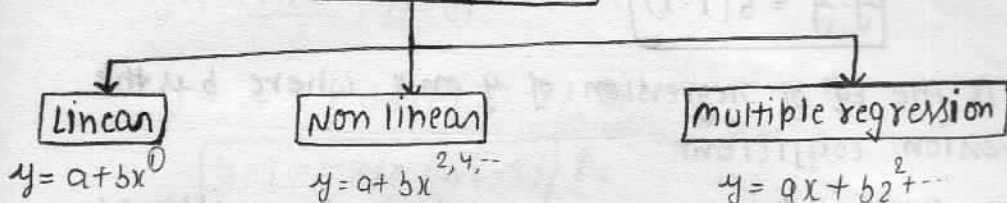 Linear
Non linear
multiple regression
y = a+bx^①
y = a+ bx^2,4,--
y = ax + bz^2+--